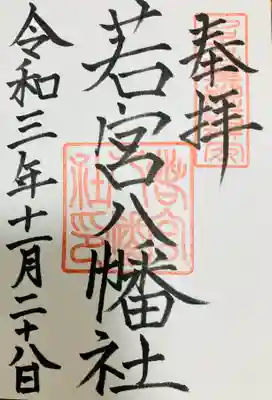 奉拝
若宮八幡社
令和三年十一月二十八日